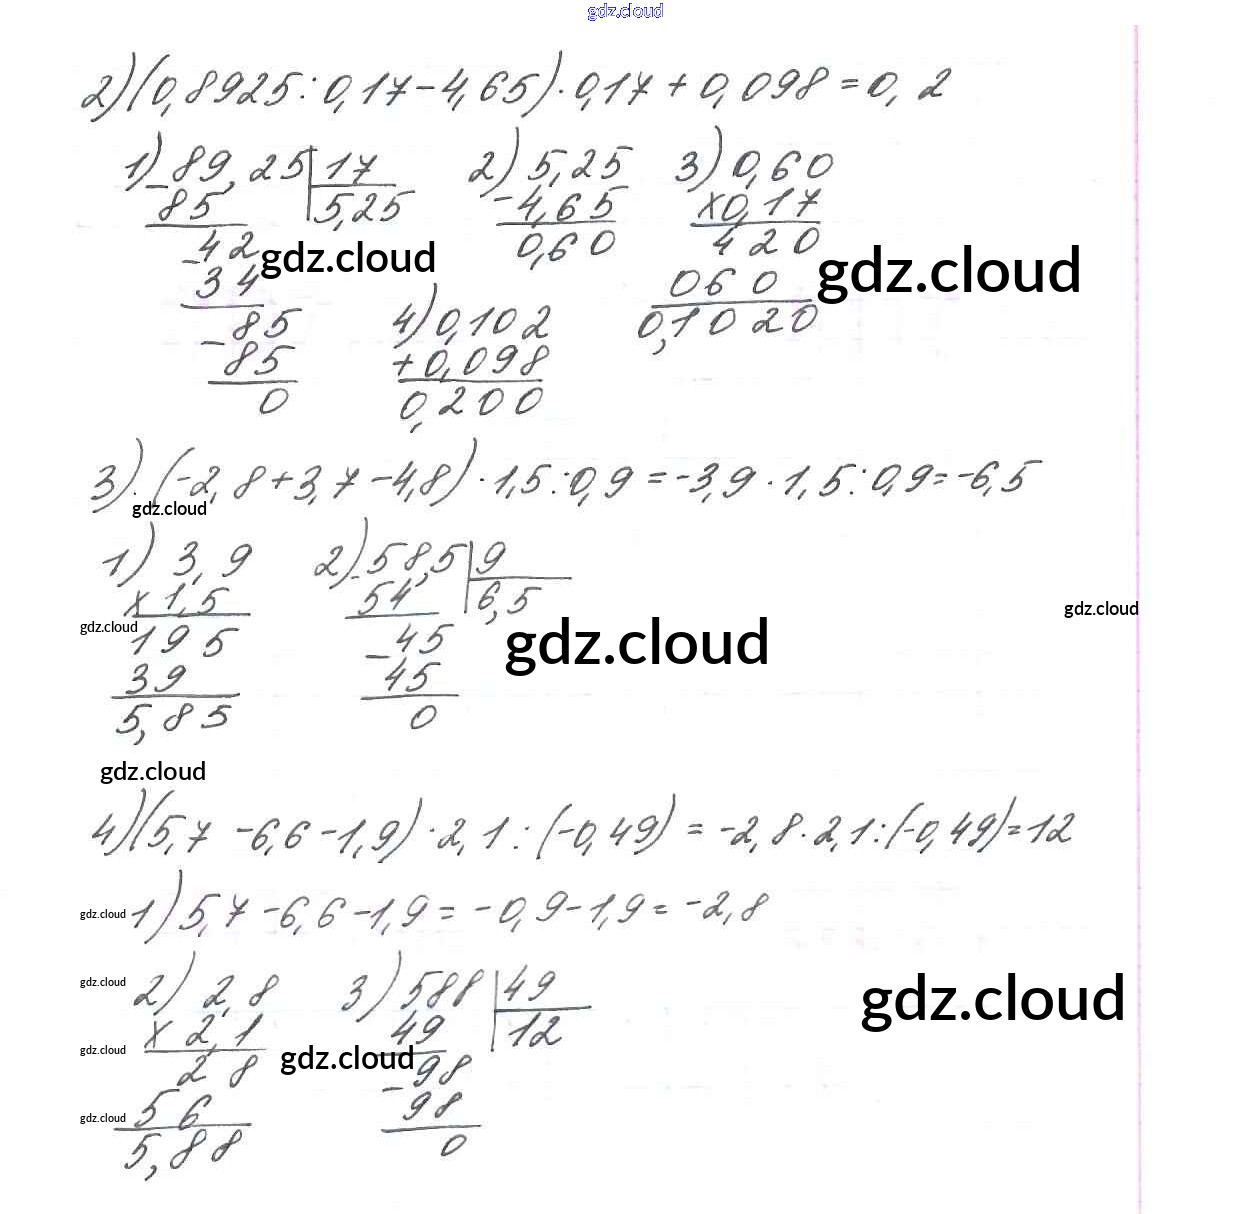 gdz.cloud
2) (0,8925 : 0,17 - 4,65) · 0,17 + 0,098 = 0,2
1) 89,25 | 17 2) 5,25 3) 0,60
- 85 5,25 - 4,65 × 0,17
42 0,60 420
- 34 gdz.cloud 060 gdz.cloud
85 4) 0,102 0,1020
- 85 + 0,098
0 0,200
3). (-2,8 + 3,7 - 4,8) · 1,5 : 0,9 = -3,9 · 1,5 : 0,9 = -6,5
gdz.cloud
1) 3,9 2) - 58,5 | 9
× 1,5 54 6,5
gdz.cloud
195 - 45 gdz.cloud
39 45
5,85 0
gdz.cloud
gdz.cloud
4) (5,7 - 6,6 - 1,9) · 2,1 : (-0,49) = -2,8 · 2,1 : (-0,49) = 12
gdz.cloud 1) 5,7 - 6,6 - 1,9 = -0,9 - 1,9 = -2,8
gdz.cloud 2) 2,8 3) 588 | 49 gdz.cloud
× 2,1 49 12
gdz.cloud 28 gdz.cloud - 98
gdz.cloud 56 98
5,88 0